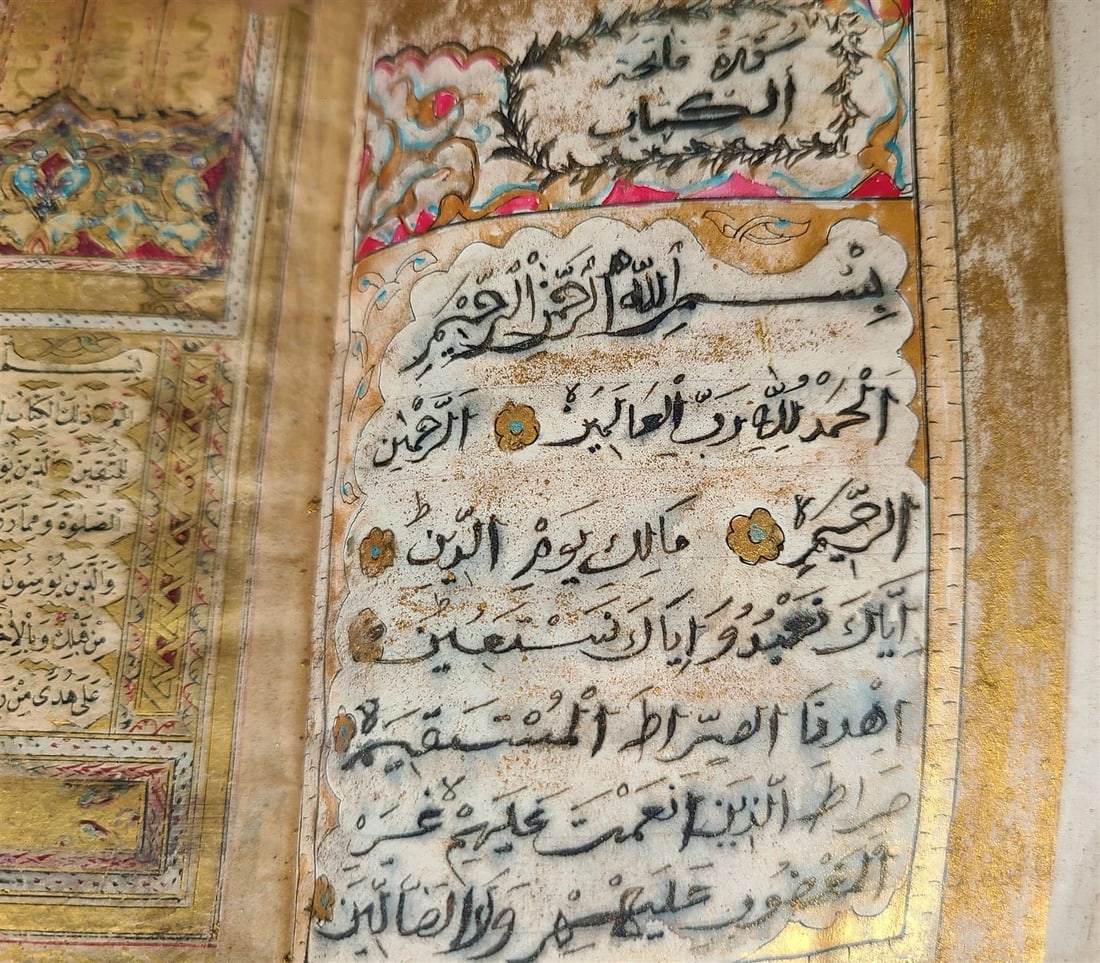 سورة فاتحة
الكتاب
بِسْمِ اللّٰهِ الرَّحْمٰنِ الرَّحِيْمِ
اَلْحَمْدُ لِلّٰهِ رَبِّ الْعَالَمِيْنَ ۙ الرَّحْمٰنِ
الرَّحِيْمِ ۙ مَالِكِ يَوْمِ الدِّيْنِ ؕ
اِيَّاكَ نَعْبُدُ وَاِيَّاكَ نَسْتَعِيْنَ ؕ
اِهْدِنَا الصِّرَاطَ الْمُسْتَقِيْمَ ۙ
صِرَاطَ الَّذِيْنَ اَنْعَمْتَ عَلَيْهِمْ ۙ غَيْرِ
الْمَغْضُوْبِ عَلَيْهِمْ وَلَا الضَّالِّيْنَ
الم ذلك الكتاب
للمتقين الذين
الصلوة ومما
والذين يؤمنون
من قبلك وبالا
على هدى من